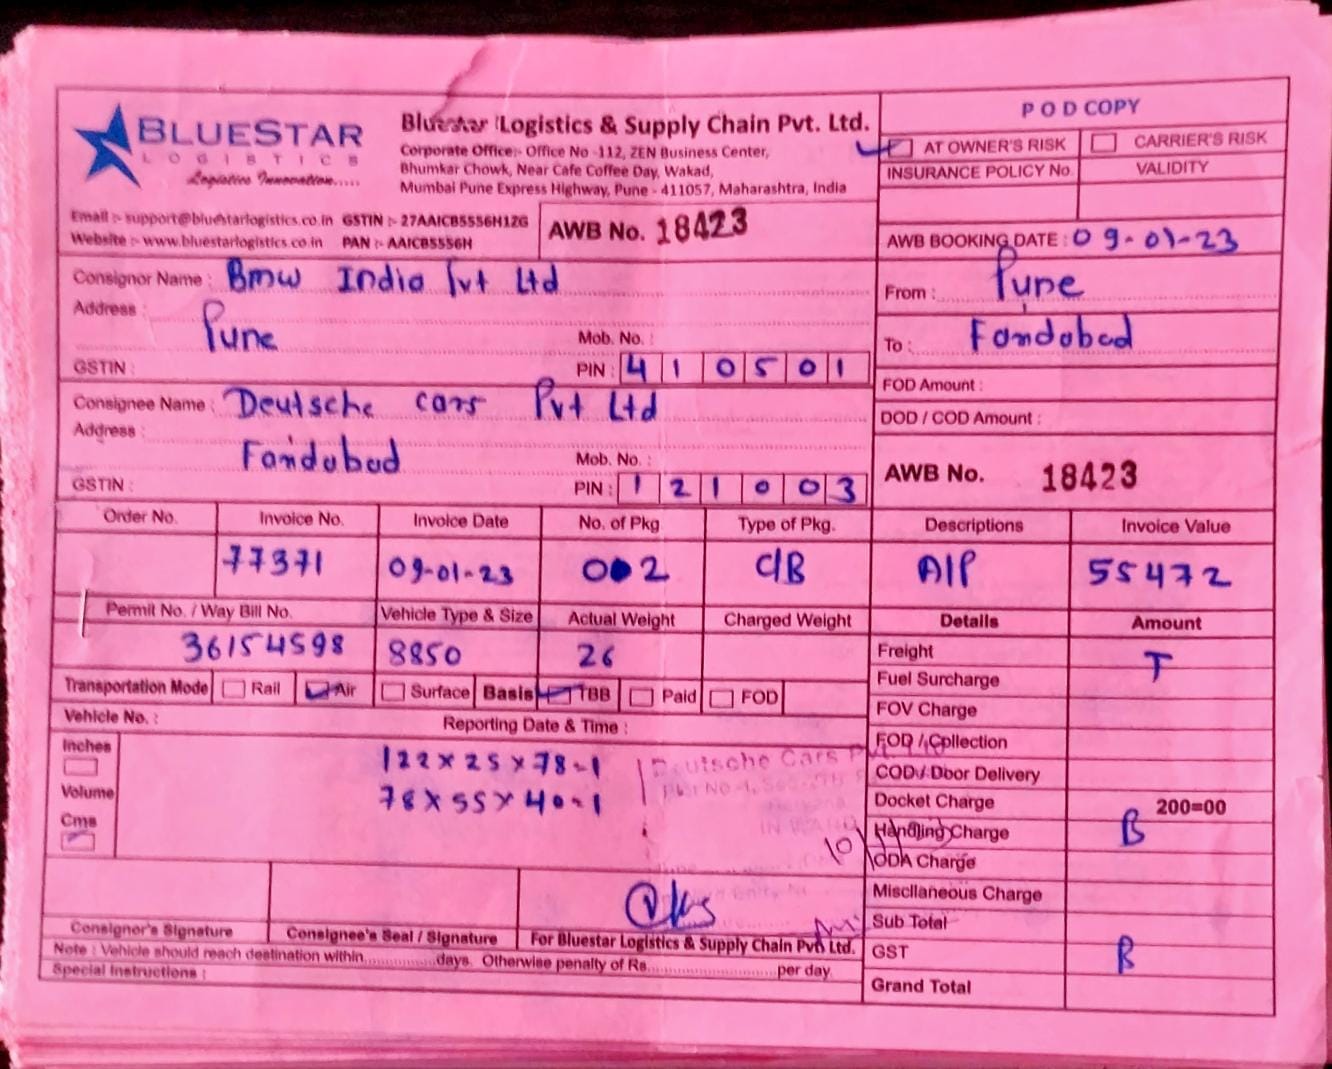 BLUESTAR
LOGISTICS
Logistics Innovation.....
Bluestar Logistics & Supply Chain Pvt. Ltd.
Corporate Office:- Office No -112, ZEN Business Center,
Bhumkar Chowk, Near Cafe Coffee Day, Wakad,
Mumbai Pune Express Highway, Pune - 411057, Maharashtra, India
POD COPY
AT OWNER'S RISK CARRIER'S RISK
INSURANCE POLICY No. VALIDITY
Email :- support@bluestarlogistics.co.in GSTIN :- 27AAICB5556H1ZG
Website :- www.bluestarlogistics.co.in PAN :- AAICB5556H
AWB No. 18423
AWB BOOKING DATE : 09-01-23
Consignor Name : Bmw India Pvt Ltd
Address :
Pune Mob. No. :
GSTIN : PIN : 410501
From : Pune
To : Faridabad
FOD Amount :
DOD / COD Amount :
Consignee Name : Deutsche cars Pvt Ltd
Address :
Faridabad Mob. No. :
GSTIN : PIN : 121003
AWB No. 18423
Order No. Invoice No. Invoice Date No. of Pkg Type of Pkg. Descriptions Invoice Value
77371 09-01-23 002 C/B A/P 55472
Permit No. / Way Bill No. Vehicle Type & Size Actual Weight Charged Weight Details Amount
36154598 8850 26
Transportation Mode Rail Air Surface Basis TBB Paid FOD
Vehicle No. : Reporting Date & Time :
Inches
Volume
Cms
122 x 25 x 78-1
78 x 55 x 40-1
Deutsche Cars
Freight T
Fuel Surcharge
FOV Charge
FOD / Collection
COD / Door Delivery
Docket Charge 200=00
Handling Charge B
ODA Charge
Miscllaneous Charge
Sub Total
GST B
Grand Total
Consignor's Signature Consignee's Seal / Signature For Bluestar Logistics & Supply Chain Pvt. Ltd.
Note : Vehicle should reach destination within...............days. Otherwise penalty of Rs...........................per day.
Special Instructions :